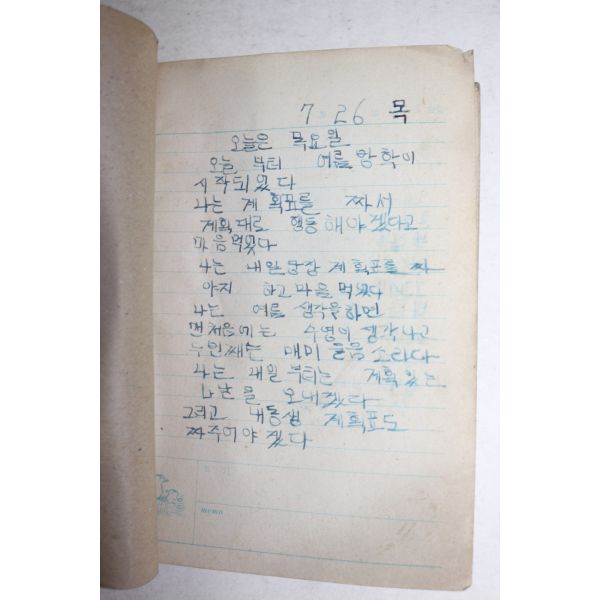 7 · 26 · 목
오늘은 목요일
오늘 부터 여름방학이
시작되었다
나는 계획표를 짜서
계획대로 행동해야겠다고
마음먹었다
나는 내일당장 계획표를 짜
아지 하고 마음 먹었다
나는 여름 생각을하면
맨처음에는 수영이 생각나고
두번째는 매미 울음 소리다
나는 내일 부터는 계획있는
나날을 보내겠다
그리고 내동생 계획표도
짜주어야 겠다
MEMO